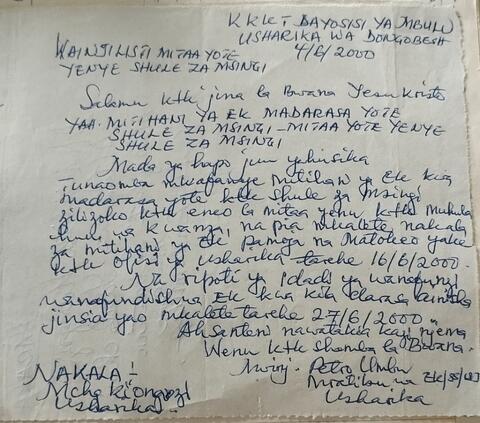 KKKT DAYOSISI YA MBULU
USHARIKA WA DONGOBESH
4/6/2000
WAINJILISTI MITAA YOTE
YENYE SHULE ZA MSINGI
Salamu ktk jina la Bwana Yesu Kristo
YAA: MITIHANI YA EK MADARASA YOTE
SHULE ZA MSINGI - MITAA YOTE YENYE
SHULE ZA MSINGI
Mada ya hapo juu yahusika
Tunaomba mkafanye mitihani ya EK kwa
madarasa yote ktk shule za Msingi
zilizoko ktk eneo la mitaa yenu ktk muhula
huu wa kwanza, na pia mkalete nakala
za mitihani ya EK pamoja na Matokeo yake
ktk Ofisi ya Usharika tarehe 16/6/2000.
Na ripoti ya idadi ya wanafunzi
wanafundishwa EK kwa kila darasa
jinsia yao mkalete tarehe 27/6/2000.
Ahsanteni nawatakia kazi njema
Wenu ktk shamba la Bwana.
Mwinj. Petro Umbu
Mratibu wa EK/SS/
Usharika
NAKALA:-
Mchg Kiongozi
Usharika.